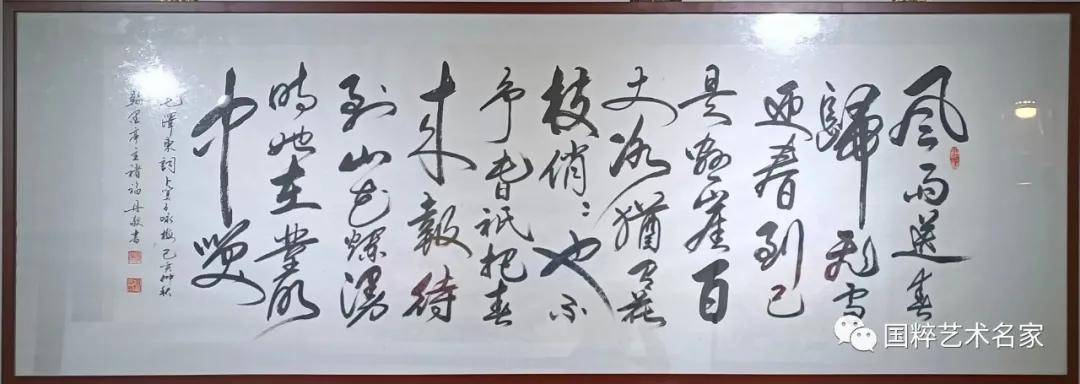 風雨送春
歸飛雪
迎春到已
是懸崖百
丈冰猶有花
枝俏〻也不
争春祇把春
来報待
到山花爛漫
時她在叢
中笑
毛澤東詞卜算子咏梅 己亥仲秋
翰墨亭主褚福丹敬書
国粹艺术名家